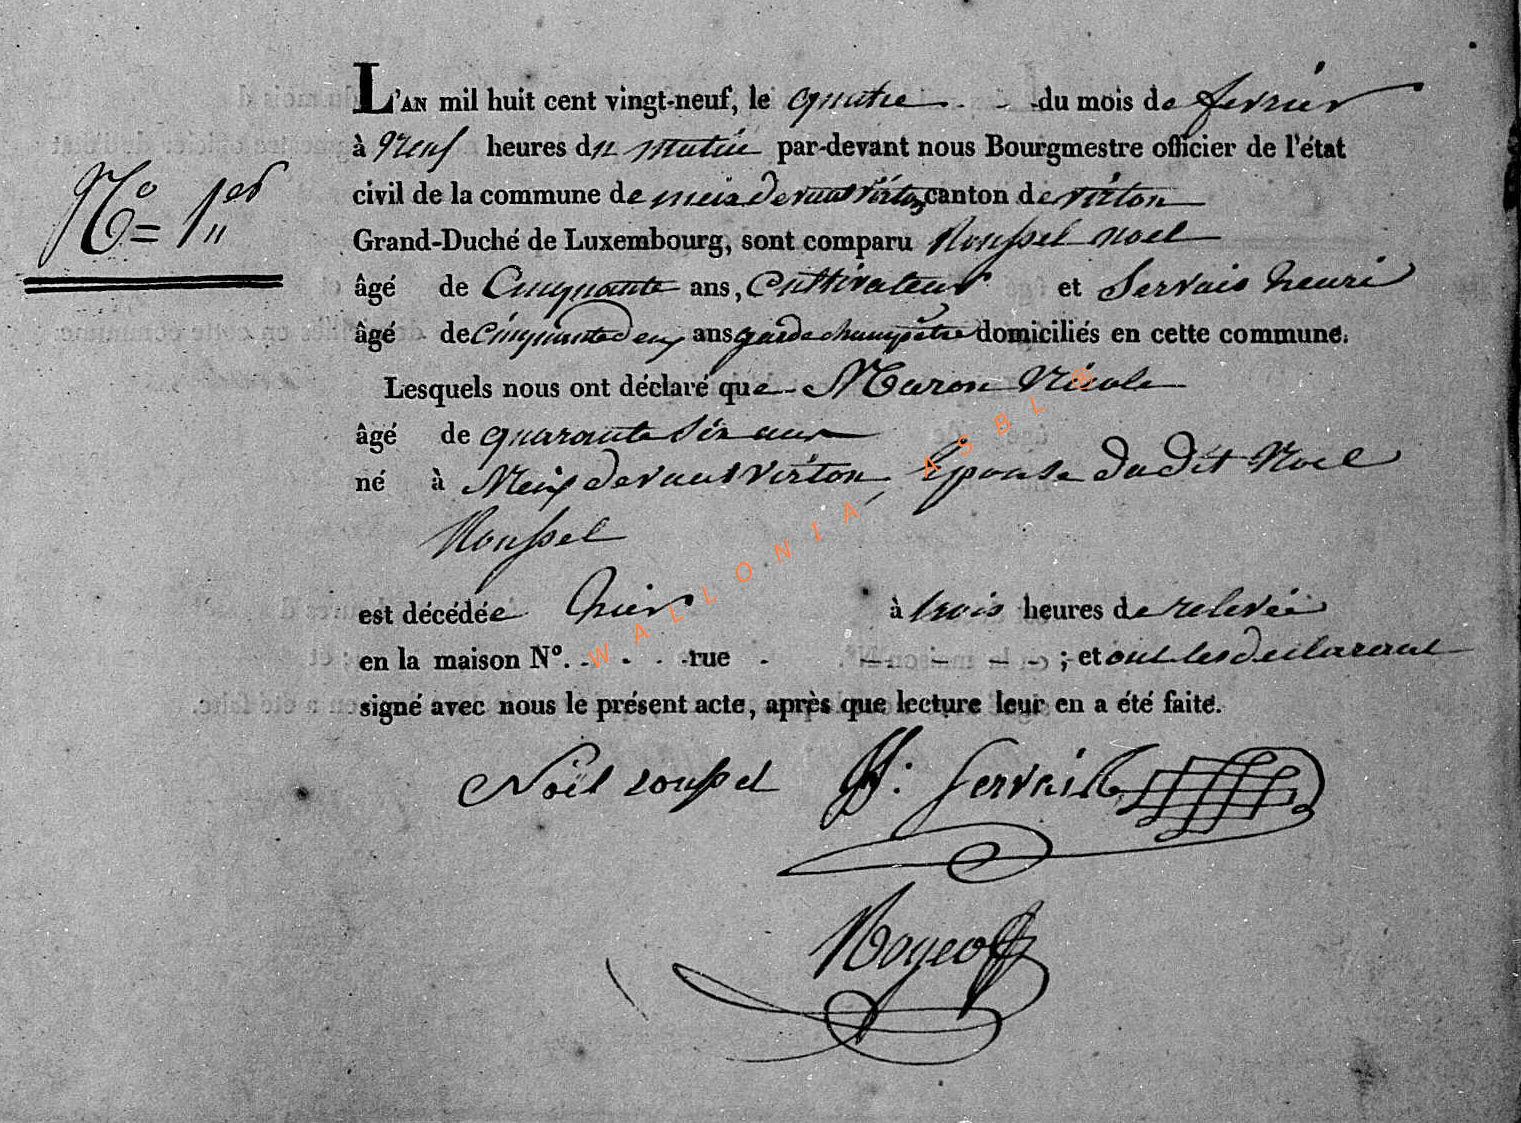 N° = 1er
L'AN mil huit cent vingt-neuf, le quatre du mois de fevrier
à Neuf heures du matin par-devant nous Bourgmestre officier de l'état
civil de la commune de meix devant virton, canton de virton
Grand-Duché de Luxembourg, sont comparu Roussel noel
âgé de Cinquante ans, Cultivateur et Servais henri
âgé de cinquante deux ans garde champêtre domiciliés en cette commune.
Lesquels nous ont déclaré que Maron Nicole
âgé de quarante six ans
né à Meix devant virton, Epouse du dit Noel
Roussel
est décédée hier à trois heures de relevée
en la maison N°. rue ; et ont les declarant
signé avec nous le présent acte, après que lecture leur en a été faite.
Noël roussel H: Servais
WALLONIA ASBL ®